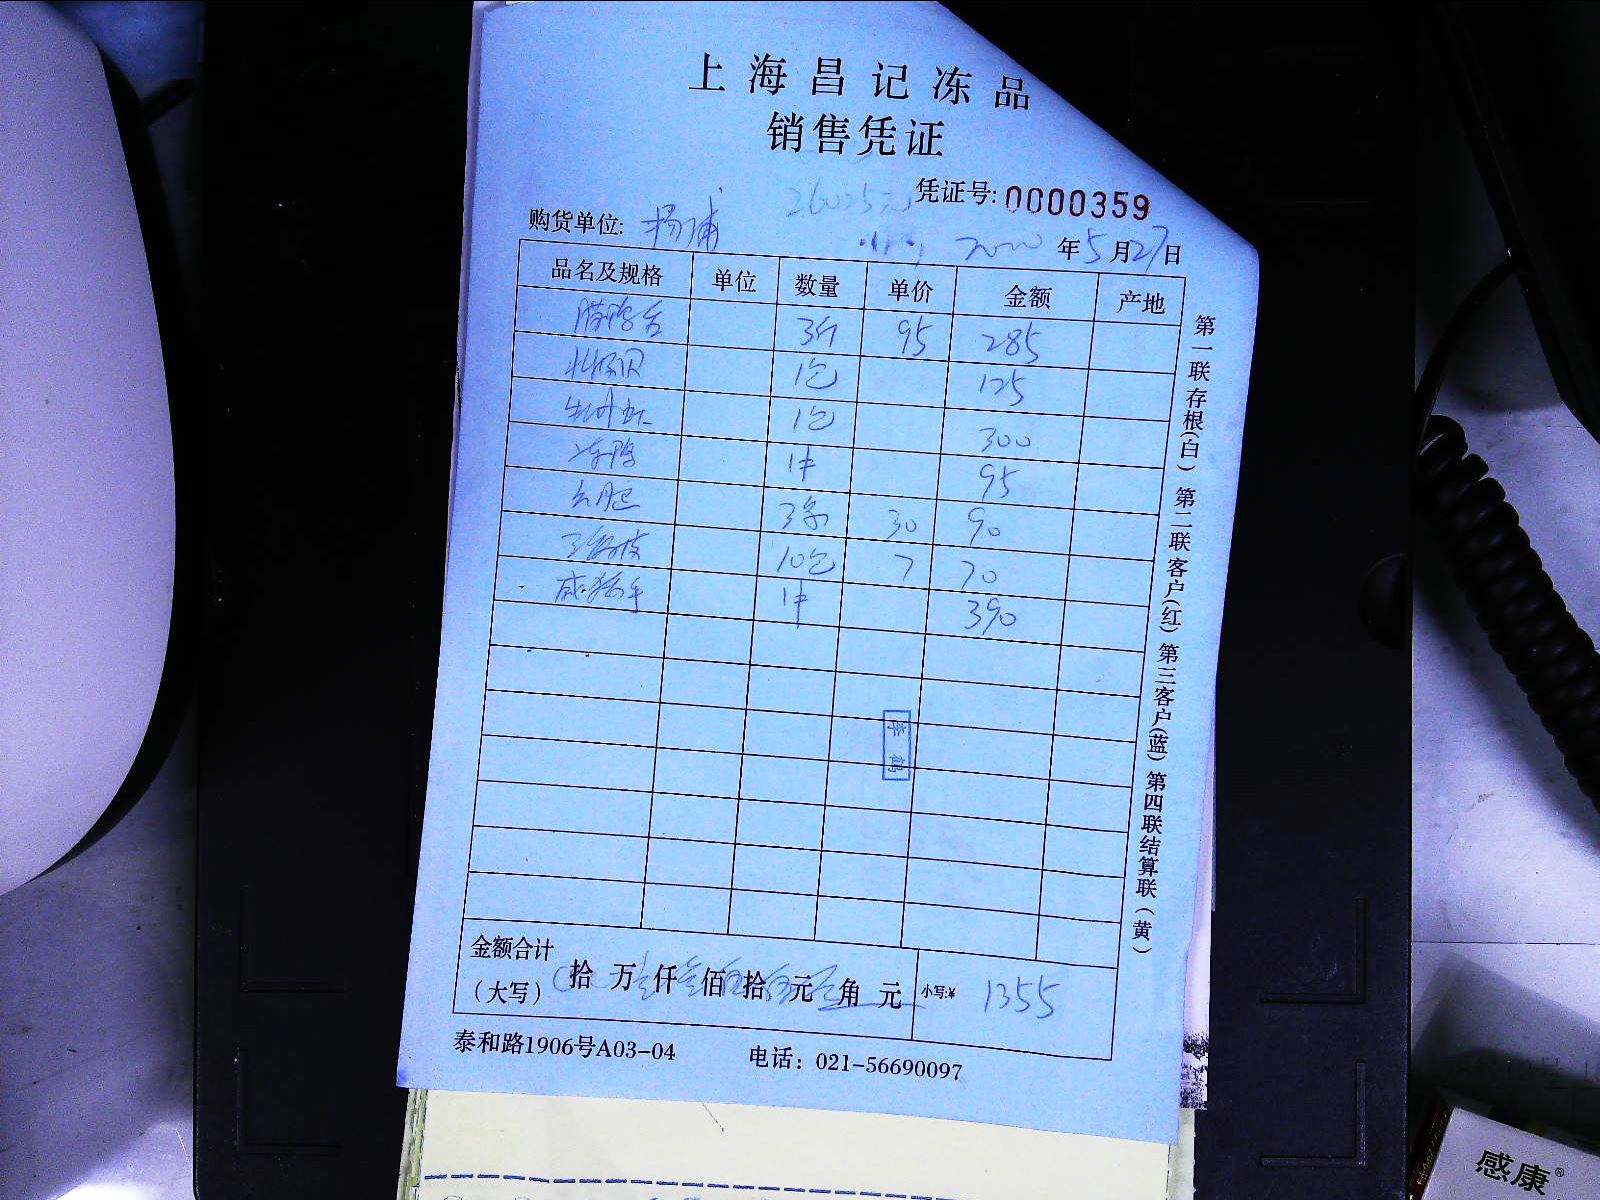 上海昌记冻品
销售凭证
凭证号: 0000359
购货单位: 杨浦
2020年5月27日
品名及规格 单位 数量 单价 金额 产地
腊鸭舌 3斤 95 285
1包 125
1包 300
冻鸭 1件 95
3条 30 90
10包 7 70
1件 390
李鹤
金额合计
(大写) 拾 万壹仟叁佰伍拾伍元 角 元 小写:¥ 1355
泰和路1906号A03-04 电话: 021-56690097
第一联存根(白) 第二联客户(红) 第三客户(蓝) 第四联结算联(黄)
感康®